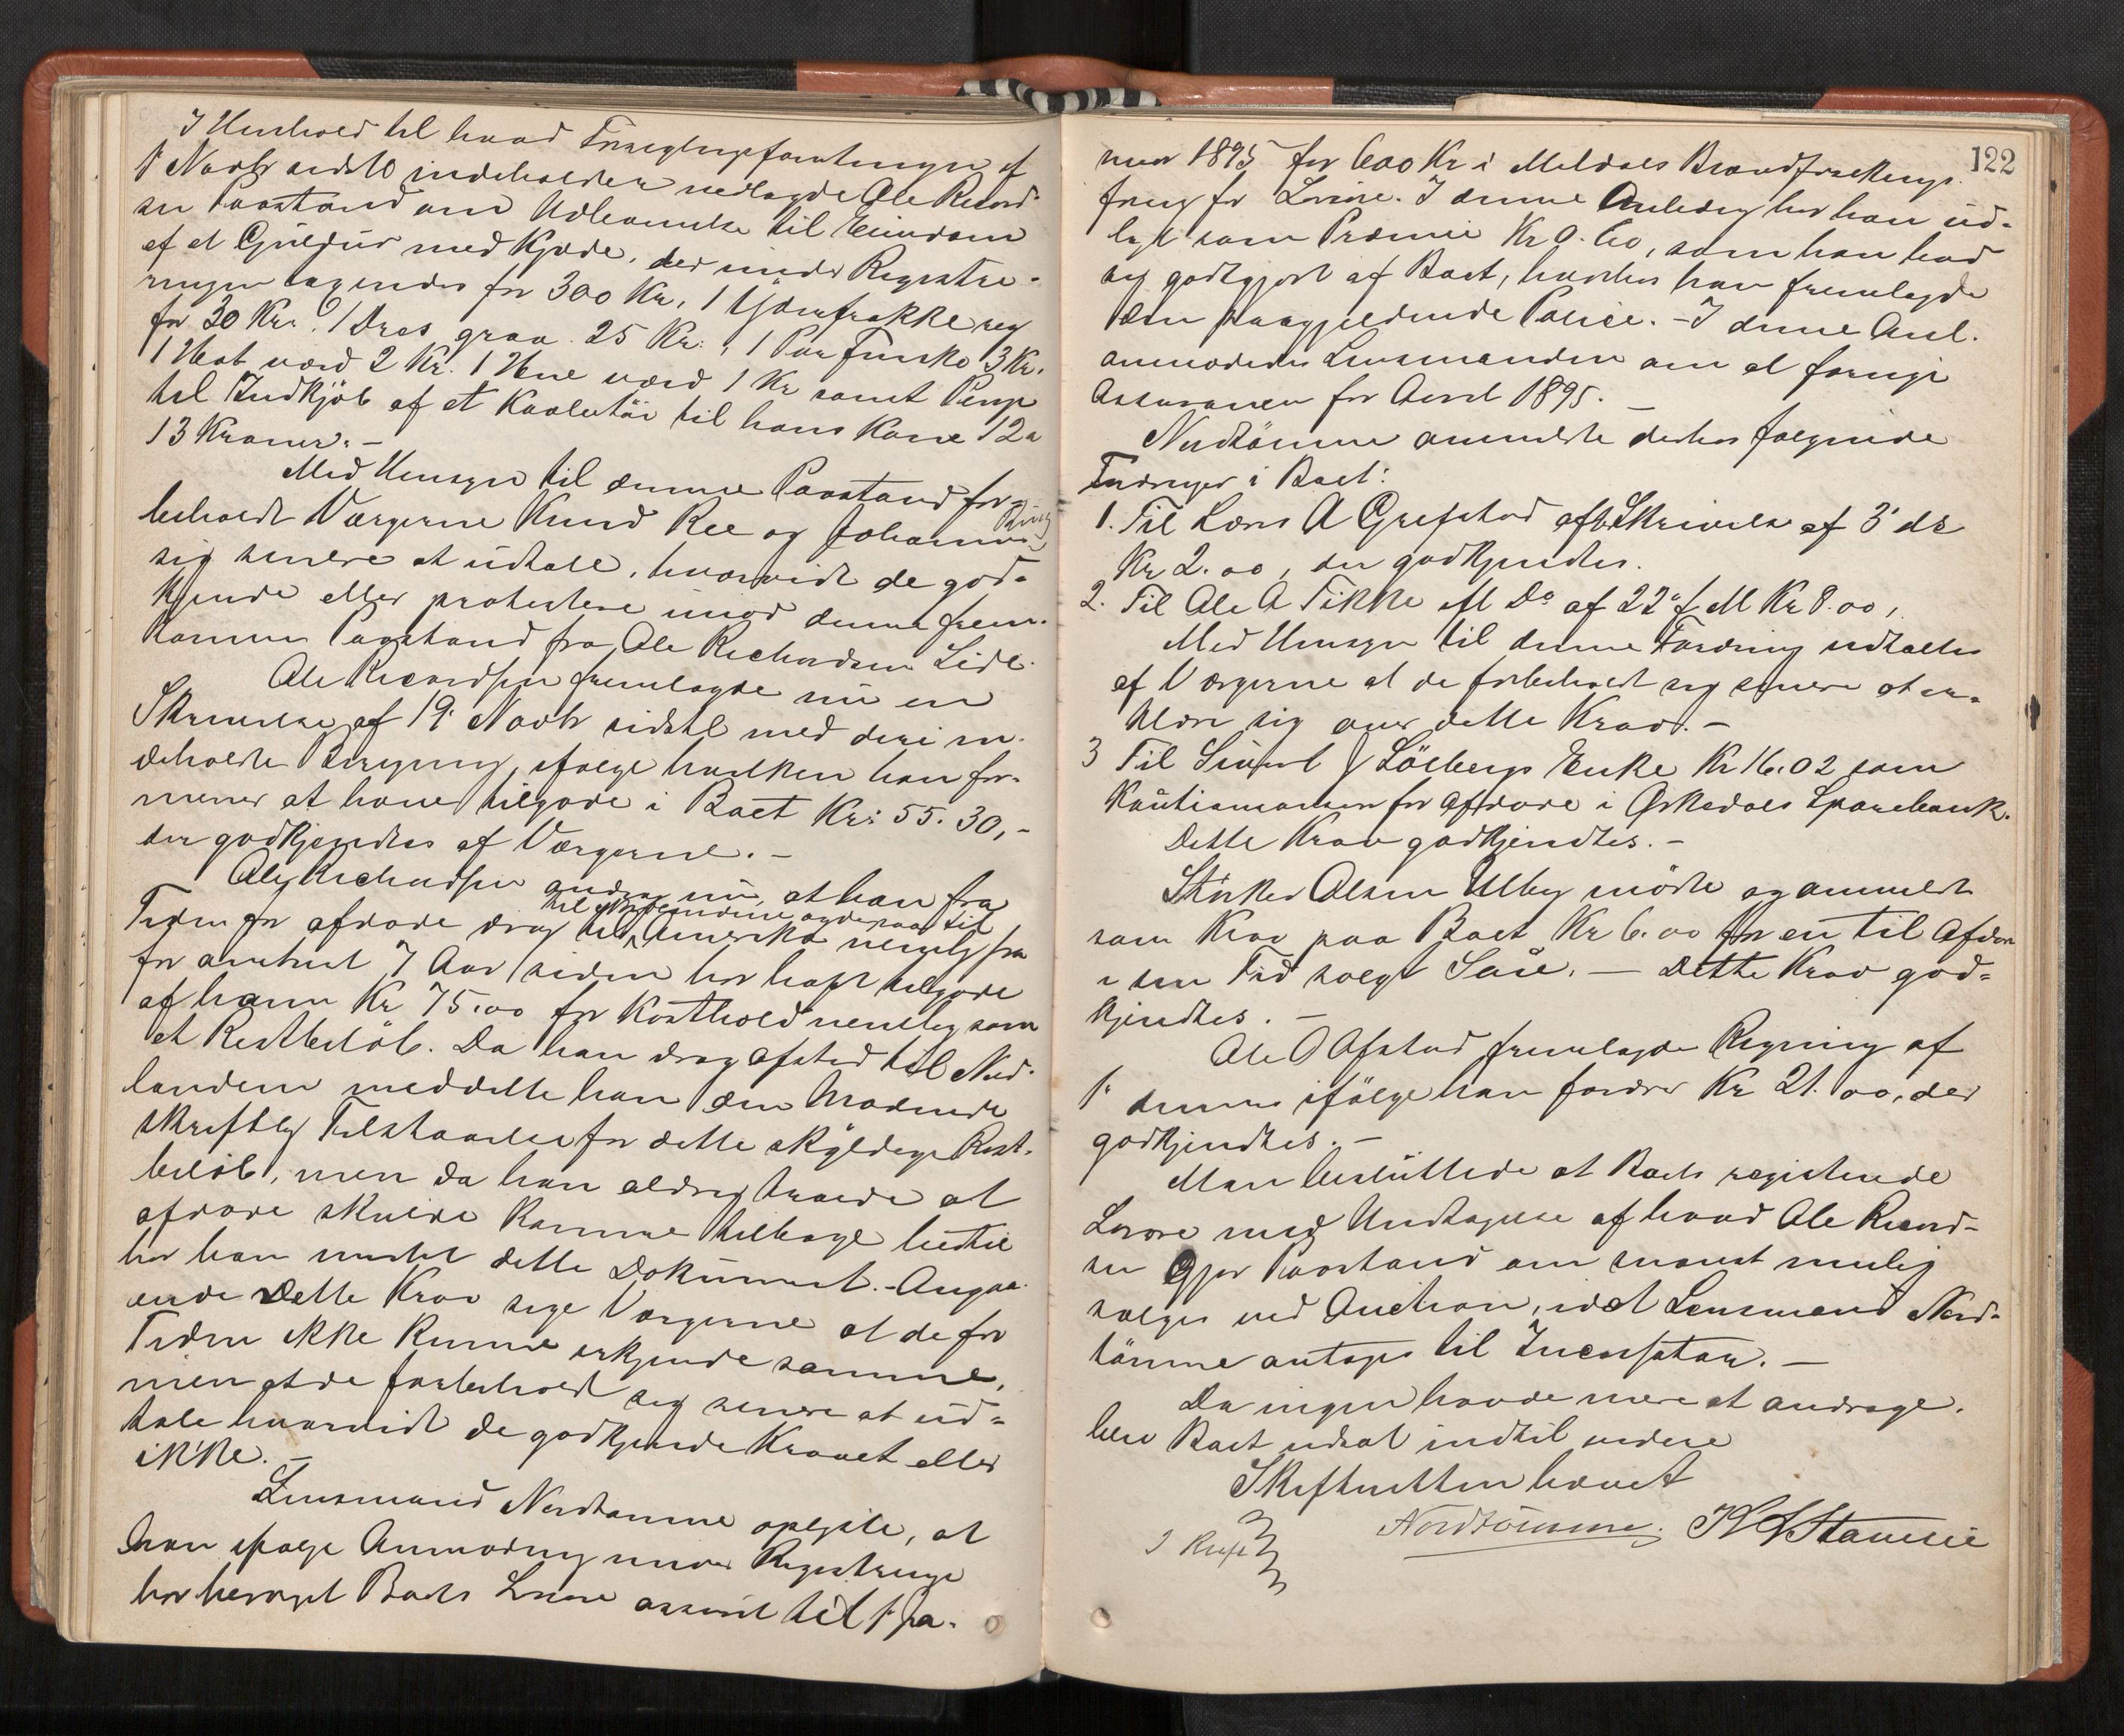 I Henhold til hvad Forseglingsforretningen af
1 Novbr sidstl indeholder nedlagde Ole Ricard-
sen Paastand om Udleverelse til Eiendom
af et Guldur med Kjæde, der under Registre-
ringen for 300 Kr, 1 Yderfrakke reg
for 30 Kr. 1 Dres graa 25 Kr., 1 Par 3 Kr.
1 Hat værd 2 Kr. 1 værd 1 Kr samt Penge
til Indkjöb af et til hans Kone 12 a
13 Kroner. –
Med Hensyn til denne Paastand for-
beholdt Værgerne Knud Ree og Johannes
sig senere at udtale, hvorvidt de god-
kjende eller protestere imod denne frem-
komne Paastand fra Ole Richardsen Lidl.
Ole Ricardsen fremlagde nu en
Skrivelse af 19. Novbr sidstl med deri in-
deholdte Beregning, ifølge hvilken han for-
mener at have tilgode i Boet Kr: 55.30, –
der godkjendtes af Værgerne. –
Ole Richardsen androg nu, at han fra
til Nordlandene og derpaa til
Tiden før afdøde drog til Amerika nemlig fra
for omtrent 7 Aar siden har havt tilgode
af ham Kr 75.00 for Kosthold nemlig som
et Restbelöb. Da han drog afsted til Nord-
landene meddelte han den Mødende
skriftlig Tilstaaelse for dette skyldige Rest-
belöb, men da han aldrig troede at
afdøde skulde komme tilbage hertil
har han mistet dette Dokument. – Angaa-
ende dette Krav sige Værgerne at de for
Tiden ikke kunne erkjende samme,
men at de forbeholdt sig senere at ud-
tale hvorvidt de godkjende Kravet eller
ikke. –
Lensmand Nordtømme oplyste, at
han ifølge Anmodning under Registreringen
har besørget Boets Løsøre assureret til 1 Ja-
122
nuar 1895 for 600 Kr i Meldals Brandforsikrings
foreng for Løsøre. I denne Anledning har han ud-
lagt som Præmie Kr 0.60, som han bad
sig godtgjort af Boet, hvorhos han fremlagde
den paagjeldende Police. – I denne Anl.
anmodedes Lensmanden om at fornye
Assurancen for Aaret 1895. –
Nordtömme anmeldte derhos følgende
Fordringer i Boet:
1. Til Lars A Grefstad efter Skrivelse af 3' ds
Kr 2.00, der godkjendtes.
2. Til Ole A Fikke eft Do af 22' f M Kr 8.00,
Med Hensyn til denne Fordring udtaltes
af Værgerne at de forbeholdt sig senere at er-
klære sig over dette Krav. –
3 Til Sivert J Lösbergs Enke Kr 16.02 som
Kautionansvar for Afdøde i Ørkedals Sparebank.
Dette Krav godkjendtes. –
Störker Olsen Ulby mödte og anmeldte
som Krav paa Boet Kr 6.00 for en til Afdøde
i sin Tid solgt Sau. – Dette Krav god-
kjendtes. –
Ole O Ofstad fremlagde Regning af
1' dennes ifölge han fordrer Kr 21.00, der
godkjendtes. –
Man besluttede at Boets registrerede
Løsøre med Undtagelse af hvad Ole Ricard-
sen gjør Paastand om snarest mulig
sælges ved Auction, idet Lensmand Nord-
tömme antages til Incassator. –
Da ingen havde mere at andrage,
blev Boet udsat indtil videre
Skifteretten hævet
Nordtömme. K L Stamsie